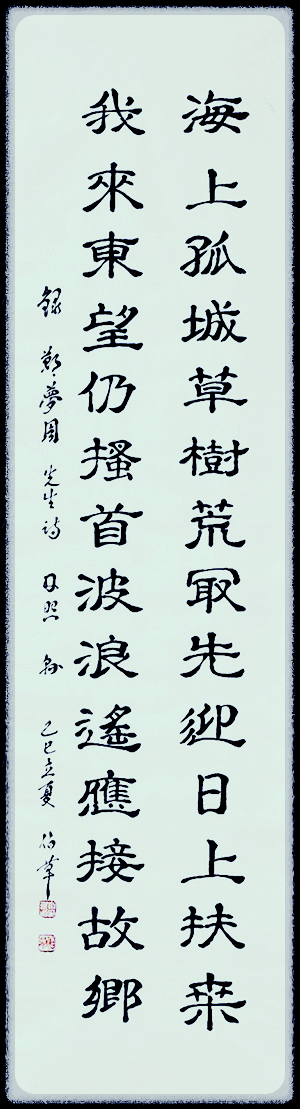 海上孤城草樹荒冣先迎日上扶桒
我來東望仍搔首波浪遙應接故鄉
錄鄭夢周先生詩日照縣乙巳立夏